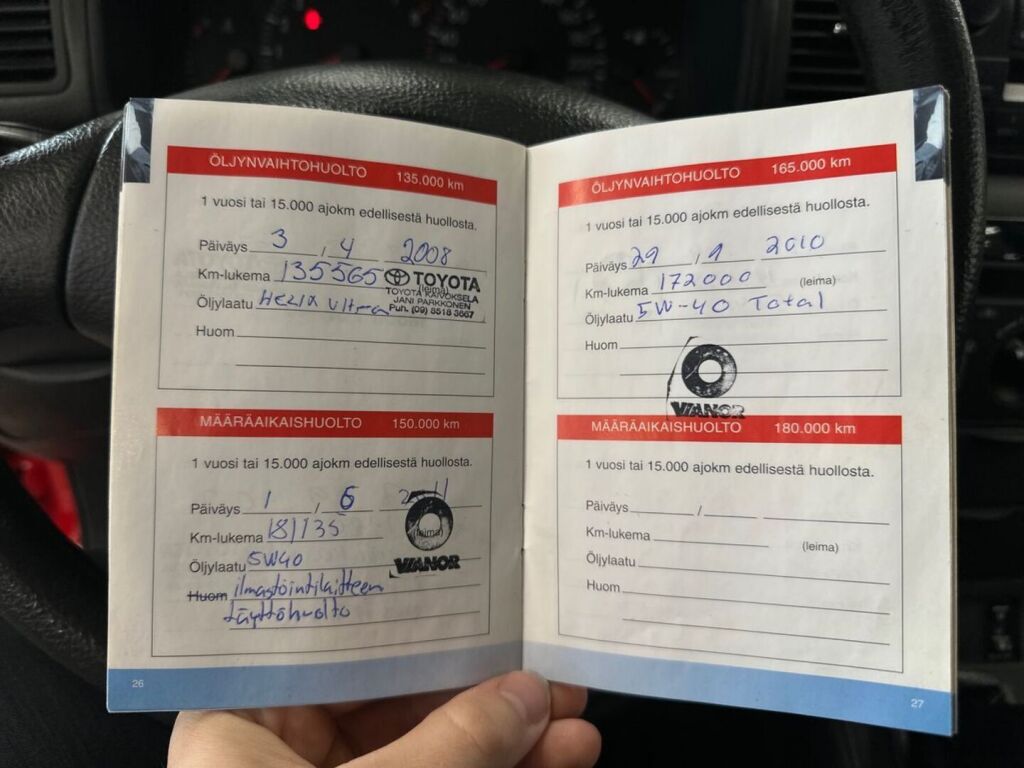 ÖLJYNVAIHTOHUOLTO 135.000 km
1 vuosi tai 15.000 ajokm edellisestä huollosta.
Päiväys 3 , 4 2008
Km-lukema 135565 TOYOTA
(leima)
TOYOTA KAIVOKSELA
JANI PARKKONEN
Puh. (09) 8518 3667
Öljylaatu Helix Ultra
Huom
MÄÄRÄAIKAISHUOLTO 150.000 km
1 vuosi tai 15.000 ajokm edellisestä huollosta.
Päiväys 1 / 6 2011
Km-lukema 181135 (leima)
Öljylaatu 5W40
VIANOR
Huom ilmastointilaitteen
täyttöhuolto
26
ÖLJYNVAIHTOHUOLTO 165.000 km
1 vuosi tai 15.000 ajokm edellisestä huollosta.
Päiväys 29 , 1 2010
Km-lukema 172000 (leima)
Öljylaatu 5W-40 Total
Huom
VIANOR
MÄÄRÄAIKAISHUOLTO 180.000 km
1 vuosi tai 15.000 ajokm edellisestä huollosta.
Päiväys /
Km-lukema (leima)
Öljylaatu
Huom
27